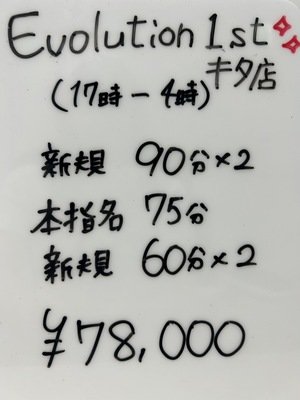 Evolution 1st
キタ店
(17時-4時)
新規 90分×2
本指名 75分
新規 60分×2
¥78,000